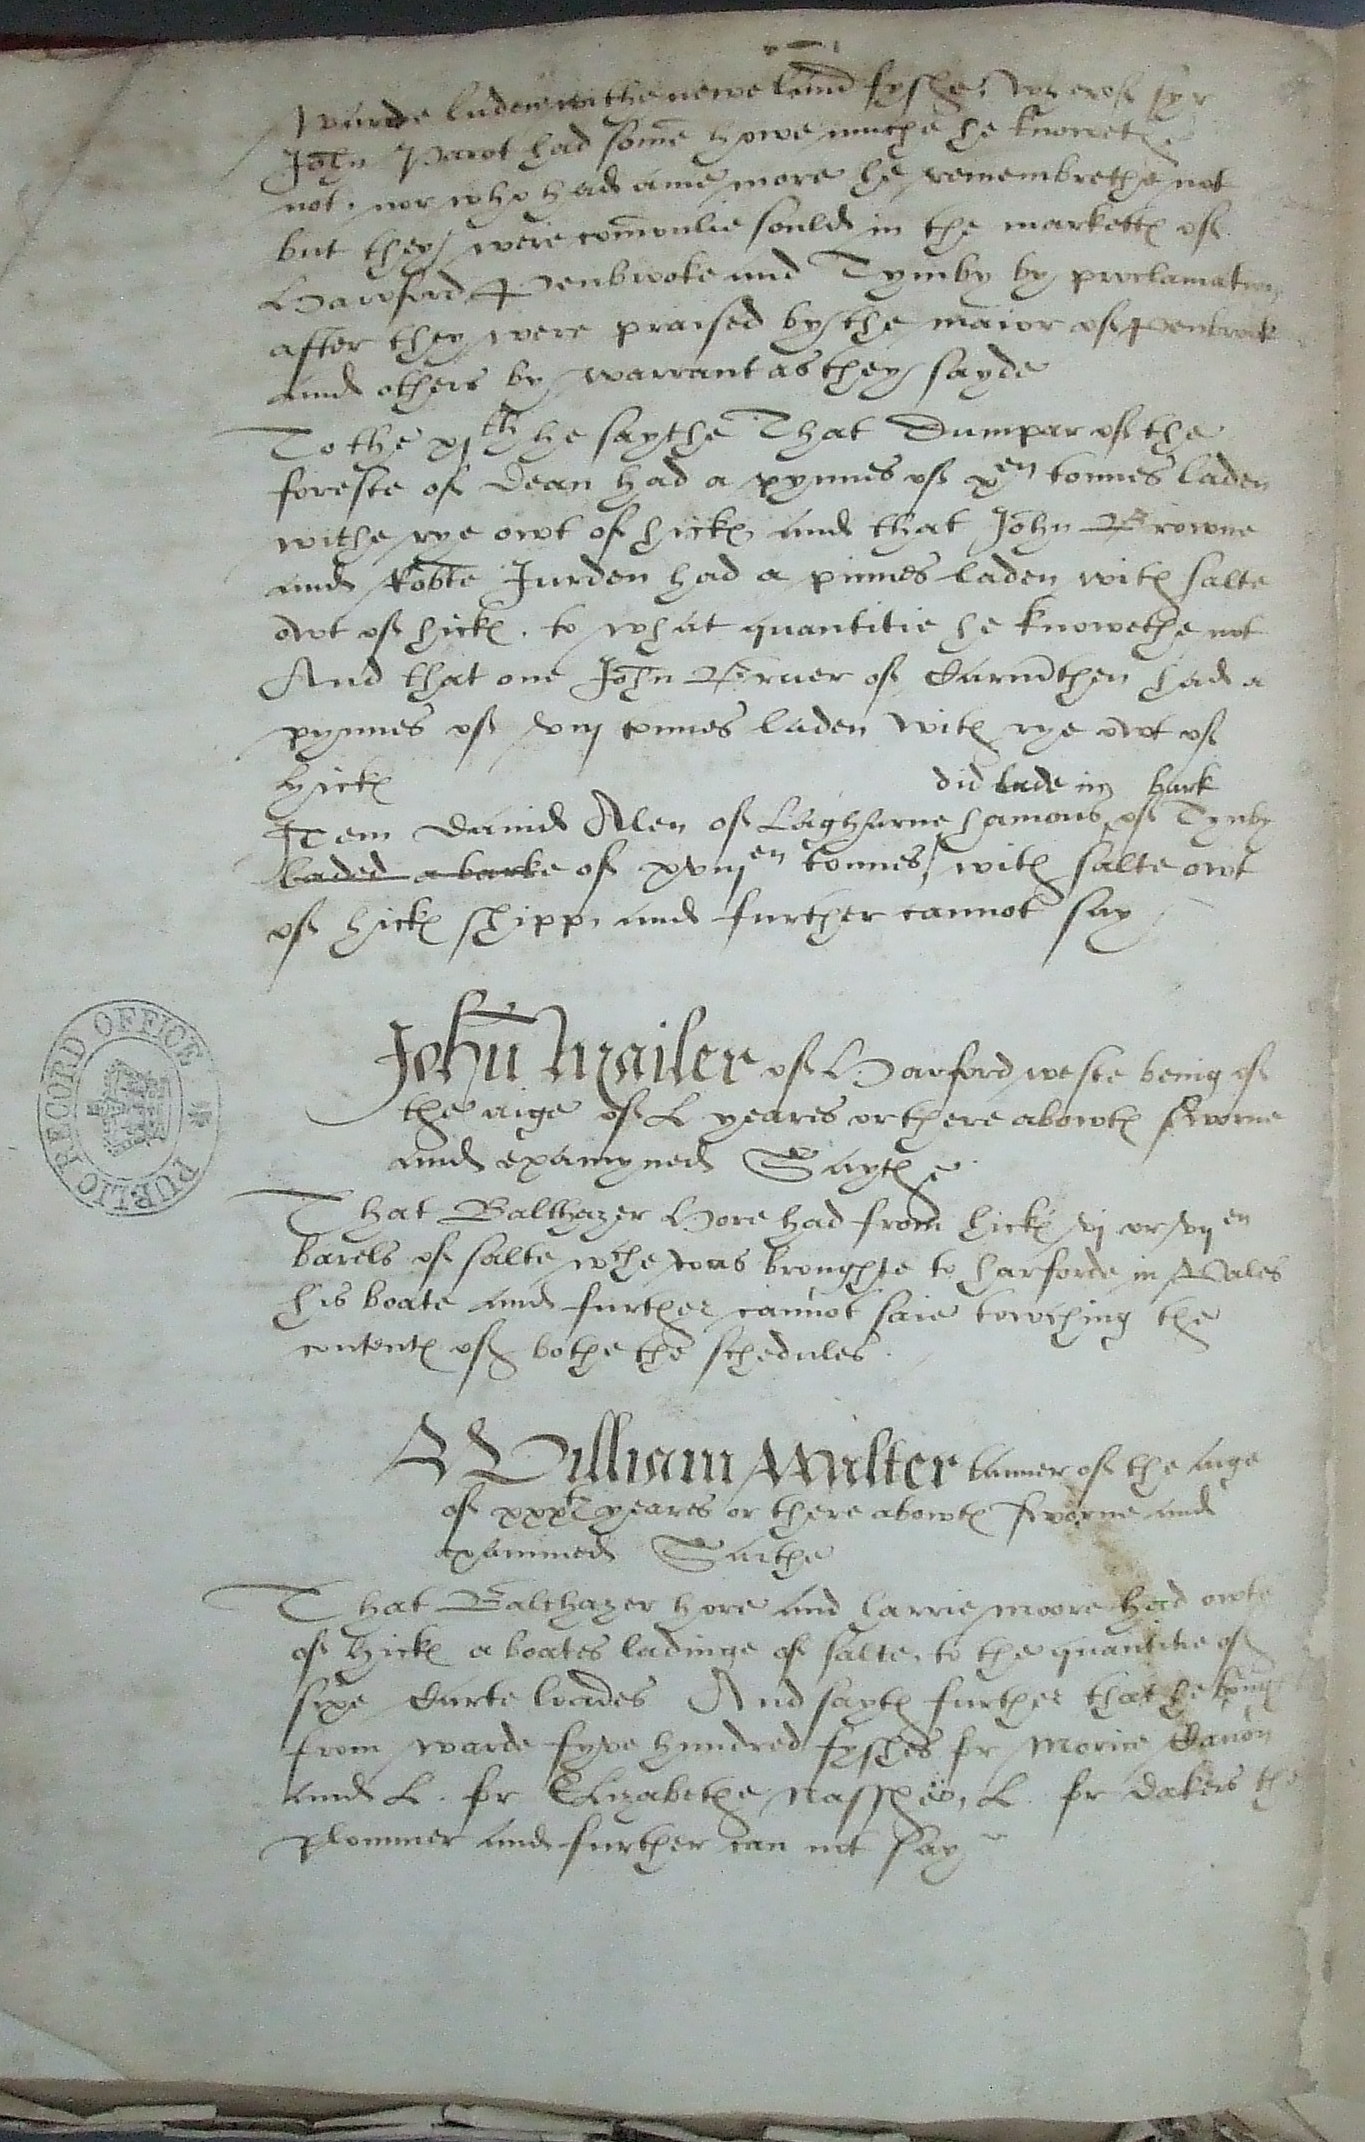 warde laden withe newe land fyshe, wherof syr
John Parot had some howe muche he knowethe
not. nor who had anie more he remembrethe not
but they were comonlie sould in the markett of
Harford Penbroke and Tymby by proclamation
after they were praised by the maior of Penbrok
and others by warrant as they sayde
To the xj th he saythe That Dumpar of the
foreste of Dean had a pynnes of x en tonnes laden
withe rye owt of hick, and that John Browne
and Robte Jurden had a pinnes laden with salte
owt of hick. to what quantitie he knowethe not
And that one John Bruer of Carmthen had a
pynnes of viij tonnes laden with rye owt of
hick
did lade in bark
Item David Alen of Lagharne hamons of Tynby
laded a barke of xviij en tonnes with salte owt
of hick shipp, and further cannot say
John Mailer of Harford weste being of
the aige of L yeares or there abowt sworne
and examyned Saythe
That Balthazer Hore had from hick vj or vij en
barels of salte wche was broughte to harforde in Wales
his boate and further cannot saie towching the
content of bothe the schedules.
William Walter tanner of the aige
of xxxtj yeares or there abowt sworne and
examined Saithe
That Balthazer hore and harrie moore had owte
of hick a boates ladinge of salte, to the quantitie of
sixe Carte loades And sayth further that he
from warde fyve hundred fyshes for Morice Canon
and L. for Elizabethe L. for Dakers the
Plommer and further can not say
PUBLIC RECORD OFFICE